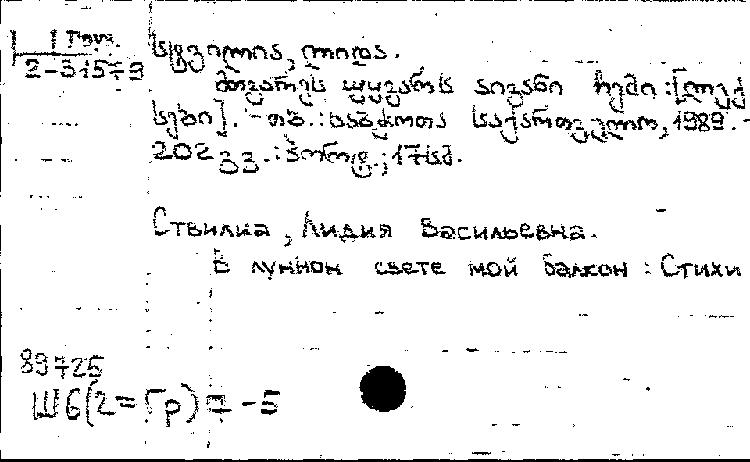 Груз.
2-31579
სტვილია, ლილა.
მთვარეს უყვარს აივანი ჩემი : [ლექ
სები]. - თბ. : საბჭოთა საქართველო, 1989. -
202 გვ. : პორტ. ; 17 სმ.
Ствилиа, Лидия Васильевна.
В лунном свете мой балкон : Стихи
89725
Ш6(2=Гр)7-5